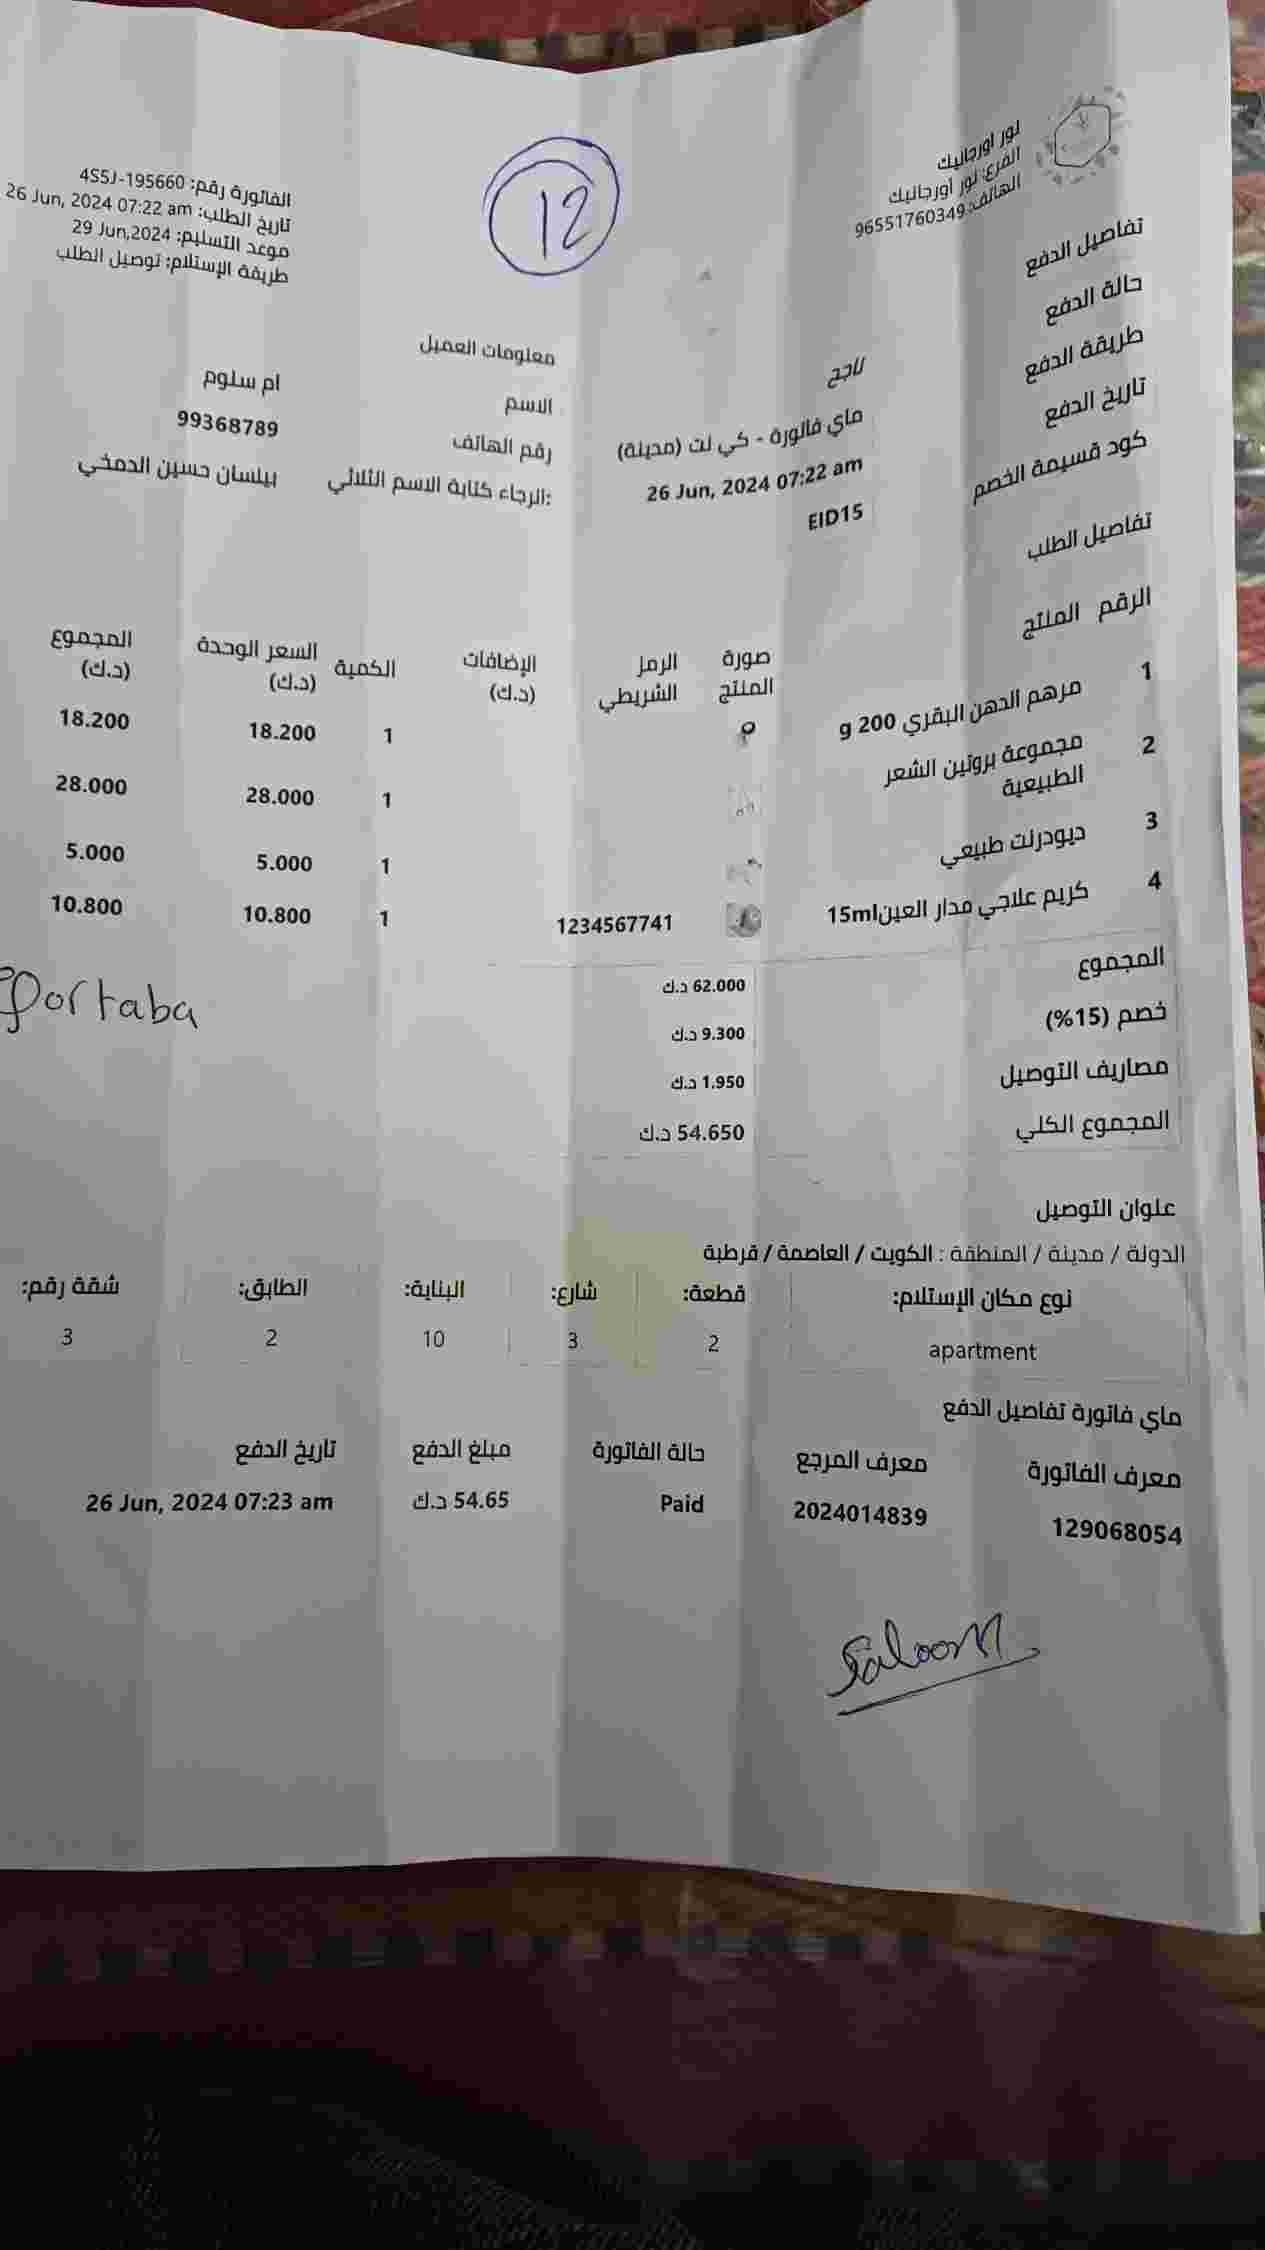 نور اورجانيك
الفرع: نور اورجانيك
الهاتف: 96551760349
12
الفاتورة رقم: 4S5J-195660
تاريخ الطلب: 26 Jun, 2024 07:22 am
موعد التسليم: 29 Jun,2024
طريقة الإستلام: توصيل الطلب
تفاصيل الدفع
حالة الدفع ناجح
طريقة الدفع ماي فاتورة - كي نت (مدينة)
تاريخ الدفع 26 Jun, 2024 07:22 am
كود قسيمة الخصم EID15
معلومات العميل
الاسم ام سلوم
رقم الهاتف 99368789
الرجاء كتابة الاسم الثلاثي: بيلسان حسين الدمخي
تفاصيل الطلب
الرقم المنتج صورة المنتج الرمز الشريطي الإضافات (د.ك) الكمية السعر الوحدة (د.ك) المجموع (د.ك)
1 مرهم الدهن البقري 200 g 1 18.200 18.200
2 مجموعة بروتين الشعر الطبيعية 1 28.000 28.000
3 ديودرنت طبيعي 1 5.000 5.000
4 كريم علاجي مدار العين15ml 1234567741 1 10.800 10.800
المجموع 62.000 د.ك
خصم (15%) 9.300 د.ك
مصاريف التوصيل 1.950 د.ك
المجموع الكلي 54.650 د.ك
عنوان التوصيل
الدولة / مدينة / المنطقة : الكويت / العاصمة / قرطبة
نوع مكان الإستلام: قطعة: شارع: البناية: الطابق: شقة رقم:
apartment 2 3 10 2 3
ماي فاتورة تفاصيل الدفع
معرف الفاتورة معرف المرجع حالة الفاتورة مبلغ الدفع تاريخ الدفع
129068054 2024014839 Paid 54.65 د.ك 26 Jun, 2024 07:23 am
Saloom